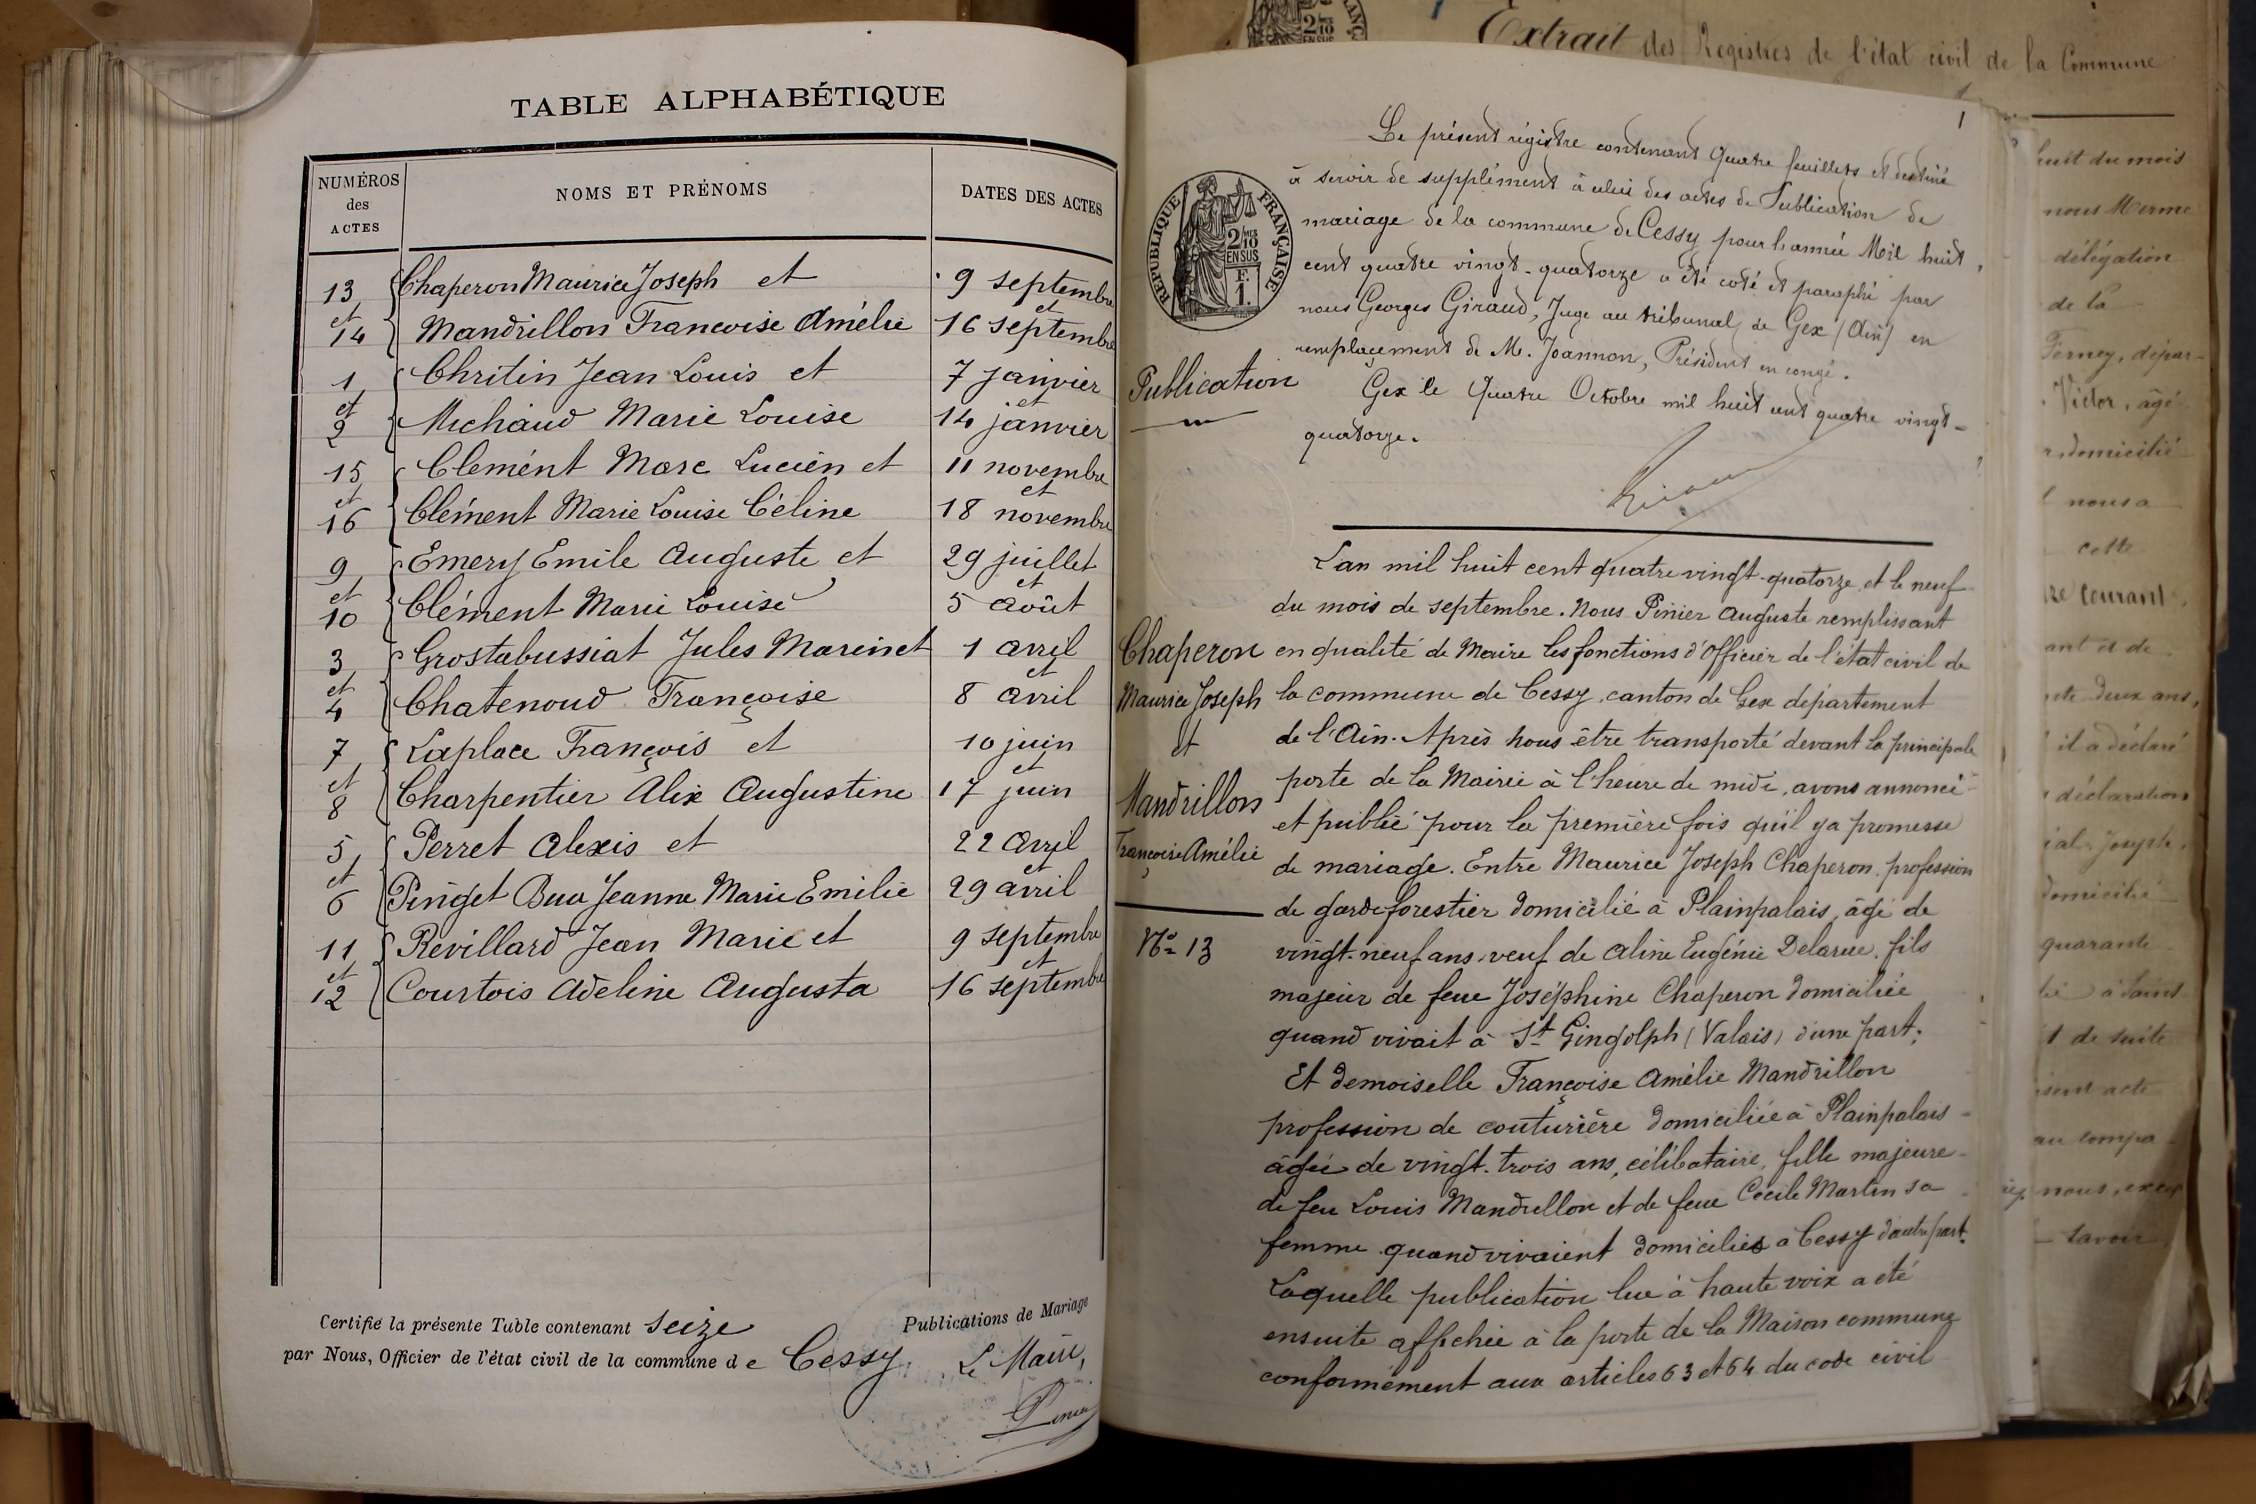 TABLE ALPHABÉTIQUE
NUMÉROS
des
ACTES
NOMS ET PRÉNOMS
DATES DES ACTES
13 Chaperon Maurice Joseph et 9 septembre
et et
14 Mandrillon Francoise Amélie 16 septembre
1 Chritin Jean Louis et 7 janvier
et et
2 Michaud Marie Louise 14 janvier
15 Clemént Marc Lucien et 11 novembre
et et
16 Clément Marie Louise Céline 18 novembre
9 Emery Emile Auguste et 29 juillet
et et
10 Clément Marie Louise 5 août
3 Grostabussiat Jules Marin et 1 avril
et et
4 Chatenoud Françoise 8 avril
7 Laplace François et 10 juin
et et
8 Charpentier Alix Augustine 17 juin
5 Perret Alexis et 22 avril
et et
6 Pinget Bua Jeanne Marie Emilie 29 avril
11 Revillard Jean Marie et 9 septembre
et et
12 Courtois Adeline Augusta 16 septembre
Certifié la présente Table contenant seize Publications de Mariage
par Nous, Officier de l'état civil de la commune de Cessy. Le Maire,
Pinier
Extrait des Registres de l'état civil de la Commune
1
Le présent régistre contenant quatre feuillets et destiné
à servir de supplément à celui des actes de Publication de
mariage de la commune de Cessy pour l'année Mil huit
cent quatre vingt-quatorze a été coté et paraphé par
nous Georges Giraud, Juge au tribunal de Gex (Ain) en
remplaçement de M. Joannon, Président en congé.
Gex le Quatre Octobre mil huit cent quatre vingt-
quatorze.
RÉPUBLIQUE FRANÇAISE
2/10
EN SUS
F.
1.
Publication
Giraud
L'an mil huit cent quatre vingt-quatorze et le neuf
du mois de septembre. Nous Pinier Auguste remplissant
en qualité de Maire les fonctions d'Officier de l'état civil de
la commune de Cessy, canton de Gex département
de l'Ain. Après nous être transporté devant la principale
porte de la Mairie à l'heure de midi, avons annoncé
et publié pour la première fois qu'il y a promesse
de mariage. Entre Maurice Joseph Chaperon, profession
de garde forestier domicilié à Plainpalais, âgé de
vingt-neuf ans, veuf de Aline Eugénie Delarue, fils
majeur de feue Joséphine Chaperon domiciliée
quand vivait à St Gingolph (Valais) d'une part;
Et demoiselle Françoise Amélie Mandrillon
profession de couturière domiciliée à Plainpalais
âgée de vingt-trois ans, célibataire, fille majeure
de feu Louis Mandrillon et de feue Cécile Martin sa
femme quand vivaient domiciliés à Cessy d'autre part.
Laquelle publication lue à haute voix a été
ensuite affichée à la porte de la Maison commune
conformément aux articles 63 et 64 du code civil
Chaperon
Maurice Joseph
et
Mandrillon
Françoise Amélie
No 13
huit du mois
nous Merme
délégation
de la
Ferney, dépar-
Victor, âgé
domicilié
nous a
cette
courant
ant et de
deux ans,
il a déclaré
déclaration
Joseph,
domicilié
quarante
t de suite
sent acte
au compa
nous, excep
savoir